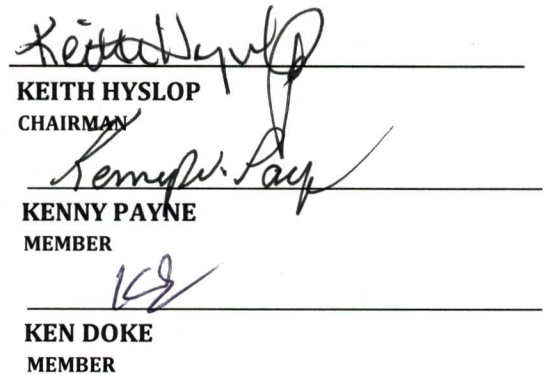 Keith Hyslop
KEITH HYSLOP
CHAIRMAN
Kenny W. Payne
KENNY PAYNE
MEMBER
KD
KEN DOKE
MEMBER